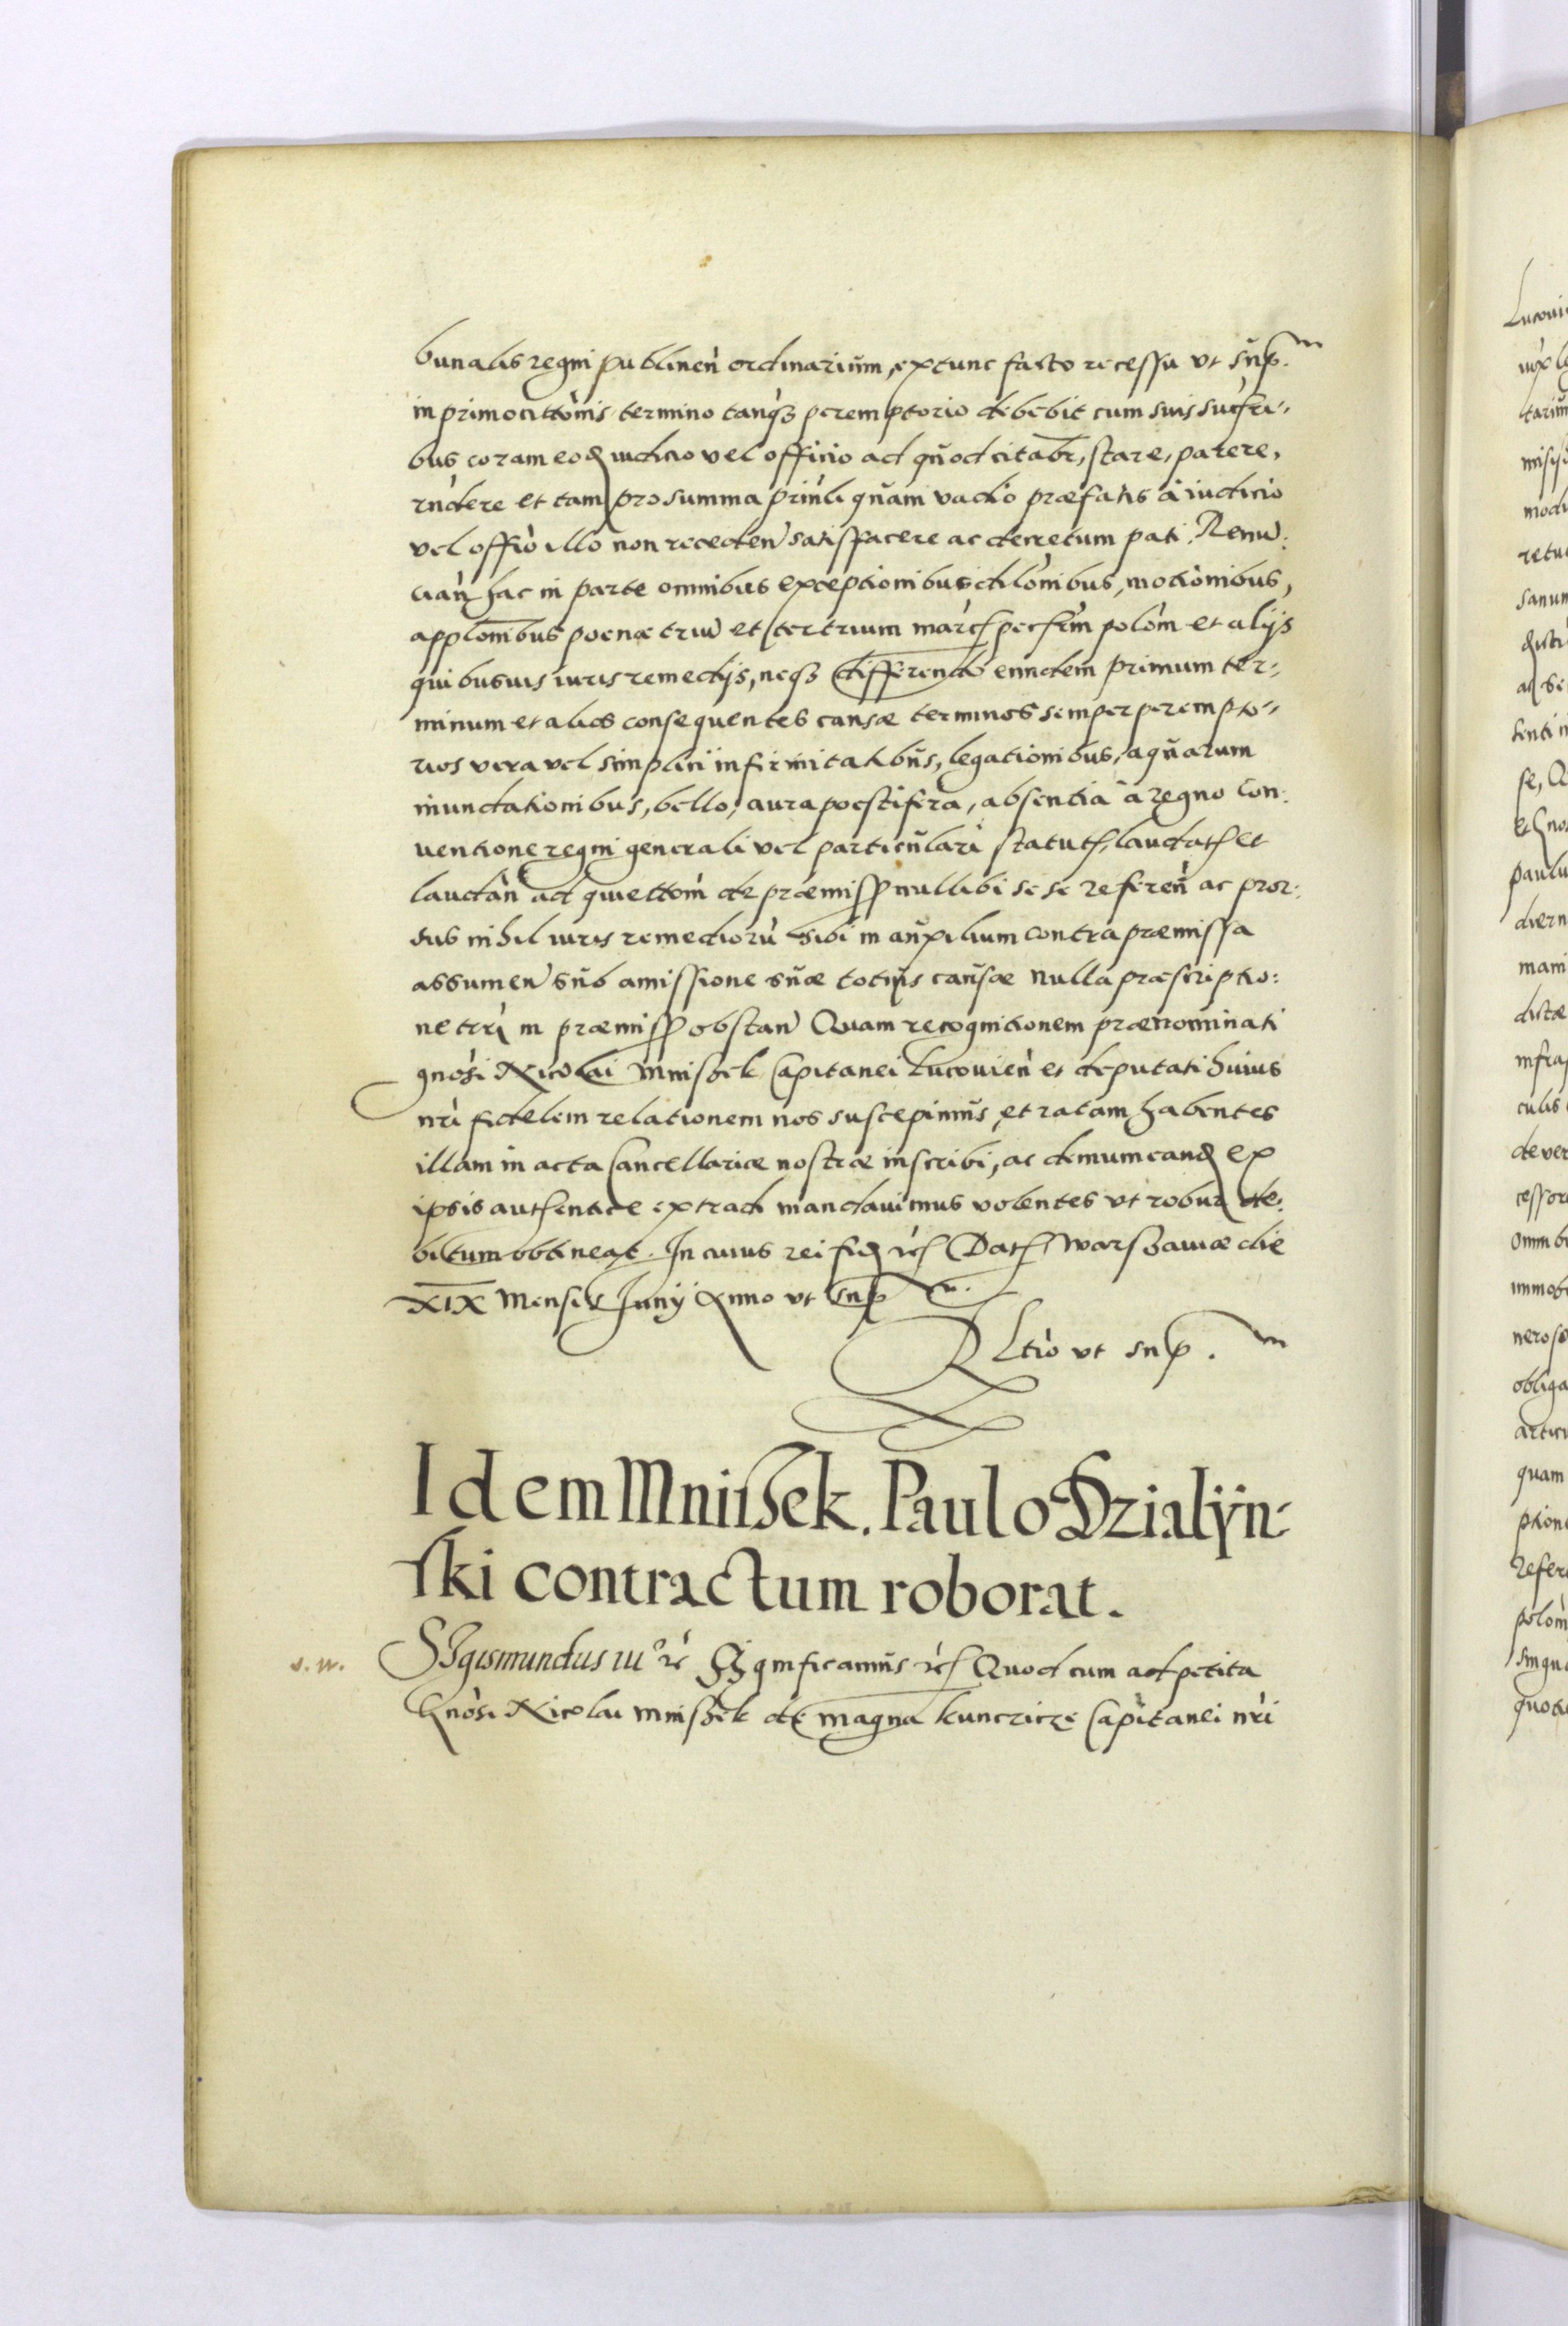 bunalis regni publinen ordinarium, extunc facto recessu ut sup.
in primo cittonis termino tanq3 peremptorio debebit cum suis succri,
bus coram eod iudicio vel officio ad quod citabr, stare, parere,
rndere et tam pro summa prinli quam vadio præfatis à iudicio
vel offio illo non receden satisfacere ac decretum pati. Renu:
cian hac in parte omnibus exceptionibus dilonibus, motionibus,
applombus poenæ triu et ter trium marc pecrim polom et alijs
quibusuis iuris remedijs, neq3 differendo eundem primum ter,
minum et alios consequentes causæ terminos semper perempto,
rios vera vel simplici infirmitatibus, legationibus, aquarum
inundationibus, bello, aura poestifera, absentia à regno Con:
uentione regni generali vel particulari statut, laudat et
laudan ad quiettom de præmiss nullibi se se referen ac pror:
sus nihil iuris remedioru sibi in auxilium contra præmissa
assumen sub amissione suæ totius causæ nulla præscriptio:
ne trri in præmiss obstan Quam recognitionem prænominati
gnosi Nicolai Mniszek Capitanei Lucouien et deputati huius
nri fidelem relationem nos suscepimus, et ratam habentes
illam in acta Cancellariæ nostræ inscribi, ac demum eand ex
ipsis authentice extradi mandauimus volentes ut robur de:
bitum obtineat. In cuius rei fid etc Dat Warszawæ die
XIX Mensis Junij Anno ut sup
Rltio ut sup.
Idem Mniszek. Paulo Dzialÿn:
ski contractum roborat.
v. w. Sigismundus III° etc Significamus etc Quod cum ad petita
Gnosi Nicolai Mniszek de magna kunczicze Capitanei nri